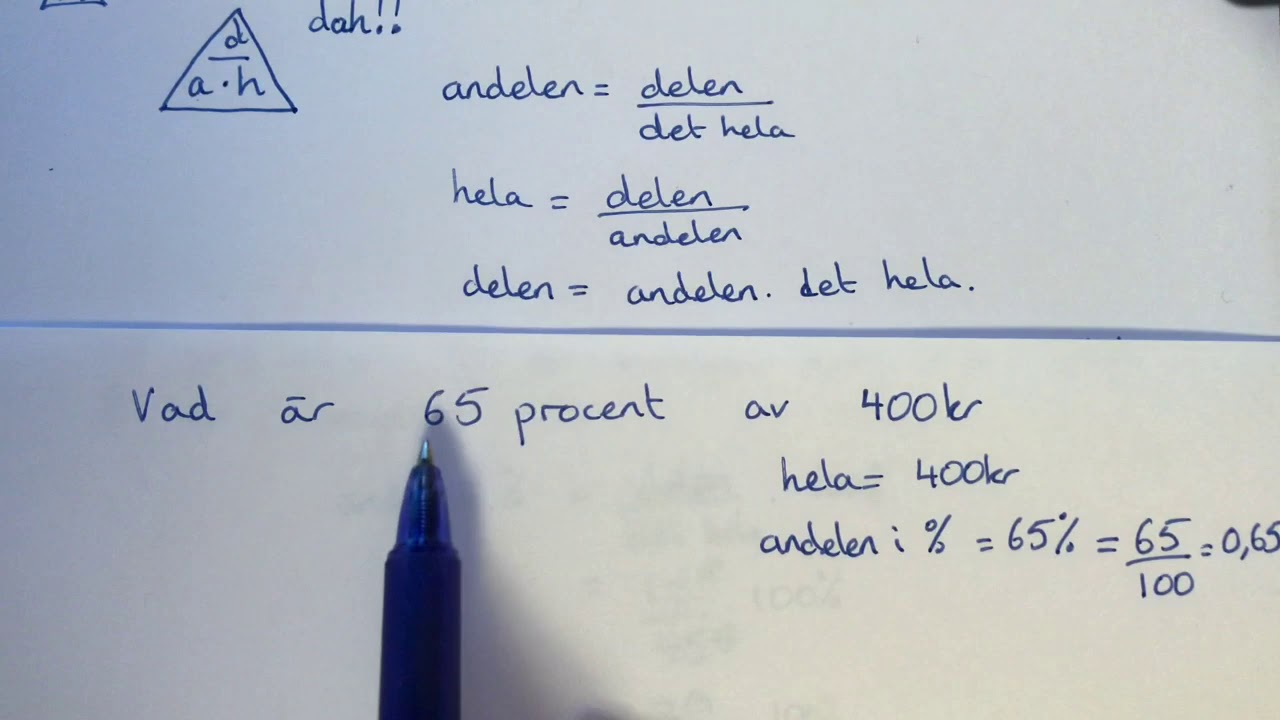 dah!!
d
a · h
andelen = delen
det hela
hela = delen
andelen
delen = andelen. det hela.
Vad är 65 procent av 400kr
hela = 400kr
andelen i % = 65% = 65 = 0,65
100